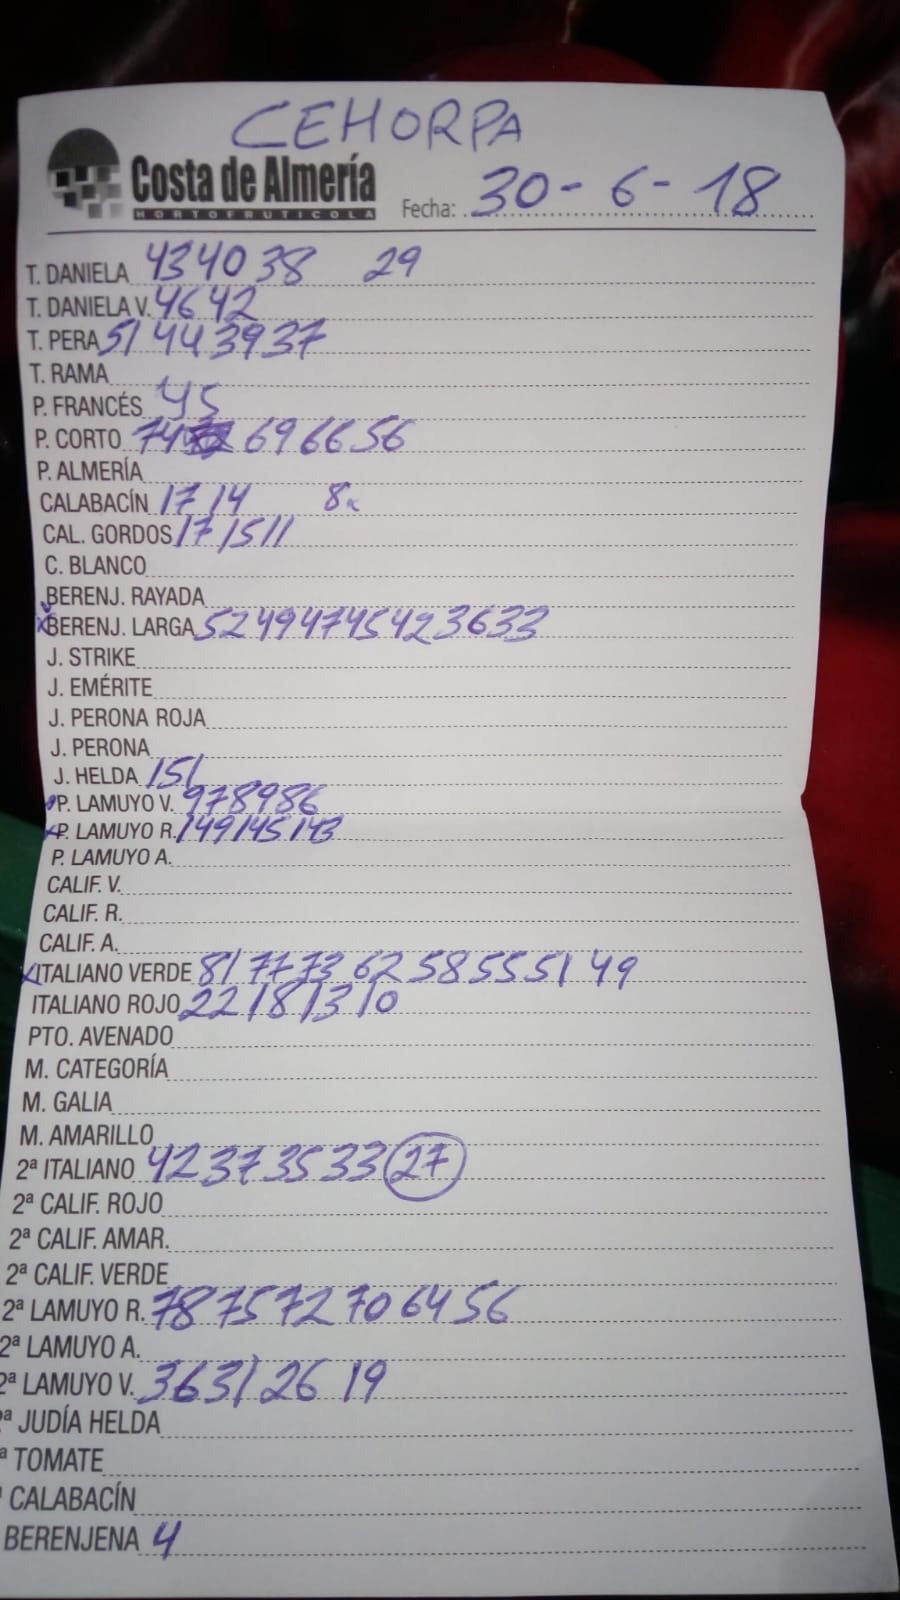 CEHORPA
Costa de Almería
HORTOFRUTICOLA
Fecha: 30-6-18
T. DANIELA 43 40 38 29
T. DANIELA V. 46 42
T. PERA 51 44 39 37
T. RAMA
P. FRANCÉS 45
P. CORTO 74 69 66 56
P. ALMERÍA
CALABACÍN 17 14 8
CAL. GORDOS 17 15 11
C. BLANCO
BERENJ. RAYADA
BERENJ. LARGA 52 49 47 45 42 36 33
J. STRIKE
J. EMÉRITE
J. PERONA ROJA
J. PERONA
J. HELDA 151
P. LAMUYO V. 97 89 86
P. LAMUYO R. 149 145 143
P. LAMUYO A.
CALIF. V.
CALIF. R.
CALIF. A.
ITALIANO VERDE 81 77 73 62 58 55 51 49
ITALIANO ROJO 22 18 13 10
PTO. AVENADO
M. CATEGORÍA
M. GALIA
M. AMARILLO
2ª ITALIANO 42 37 35 33 27
2ª CALIF. ROJO
2ª CALIF. AMAR.
2ª CALIF. VERDE
2ª LAMUYO R. 78 75 72 70 64 56
2ª LAMUYO A.
2ª LAMUYO V. 36 31 26 19
ª JUDÍA HELDA
ª TOMATE
CALABACÍN
BERENJENA 4